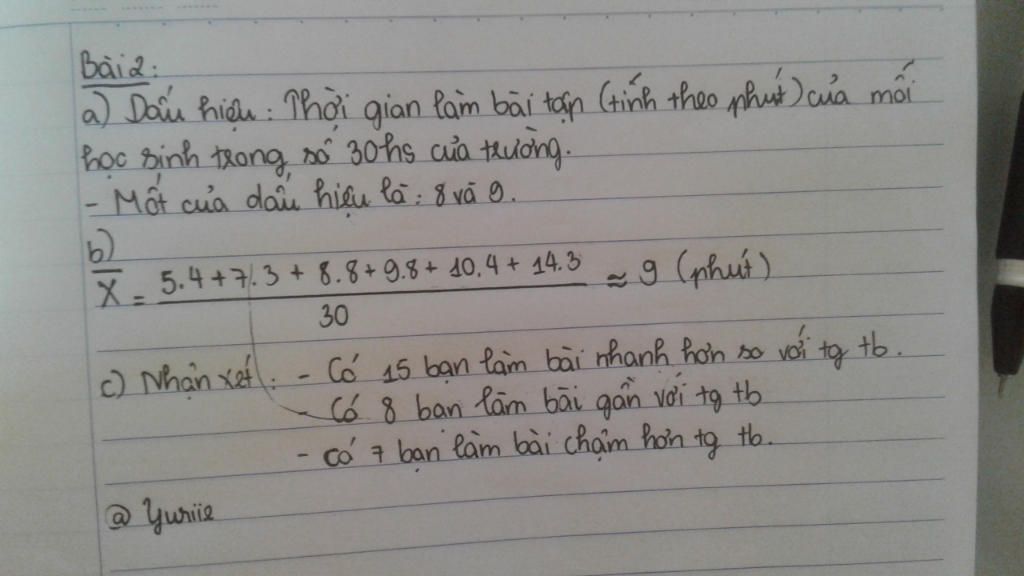 Bài 2:
a) Dấu hiệu: Thời gian làm bài tập (tính theo phút) của mỗi
học sinh trong số 30hs của trường.
- Mốt của dấu hiệu là: 8 và 9.
b)
X̅ = 5.4 + 7.3 + 8.8 + 9.8 + 10.4 + 14.3 / 30 ≈ 9 (phút)
c) Nhận xét: - Có 15 bạn làm bài nhanh hơn so với tg tb.
- Có 8 bạn làm bài gần với tg tb
- có 7 bạn làm bài chậm hơn tg tb.
@ Yuriie